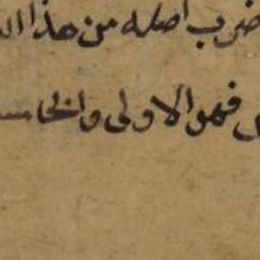 ضرب اصله من هذا ال
فهو الاولى والخامسـ